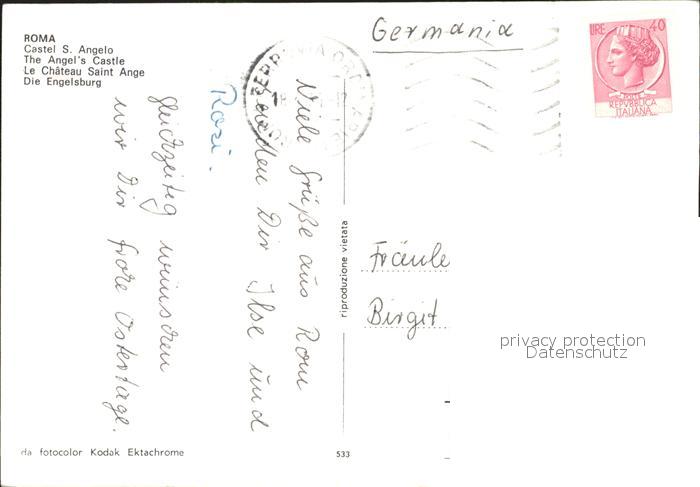 ROMA
Castel S. Angelo
The Angel's Castle
Le Château Saint Ange
Die Engelsburg
Germania
LIRE 40
REPVBBLICA
ITALIANA
Viele Grüße aus Rom
senden Dir Ilse und
Rosi.
Gleichzeitig wünschen
wir Dir frohe Ostertage.
riproduzione vietata
Fräule
Birgit
privacy protection
Datenschutz
da fotocolor Kodak Ektachrome
533